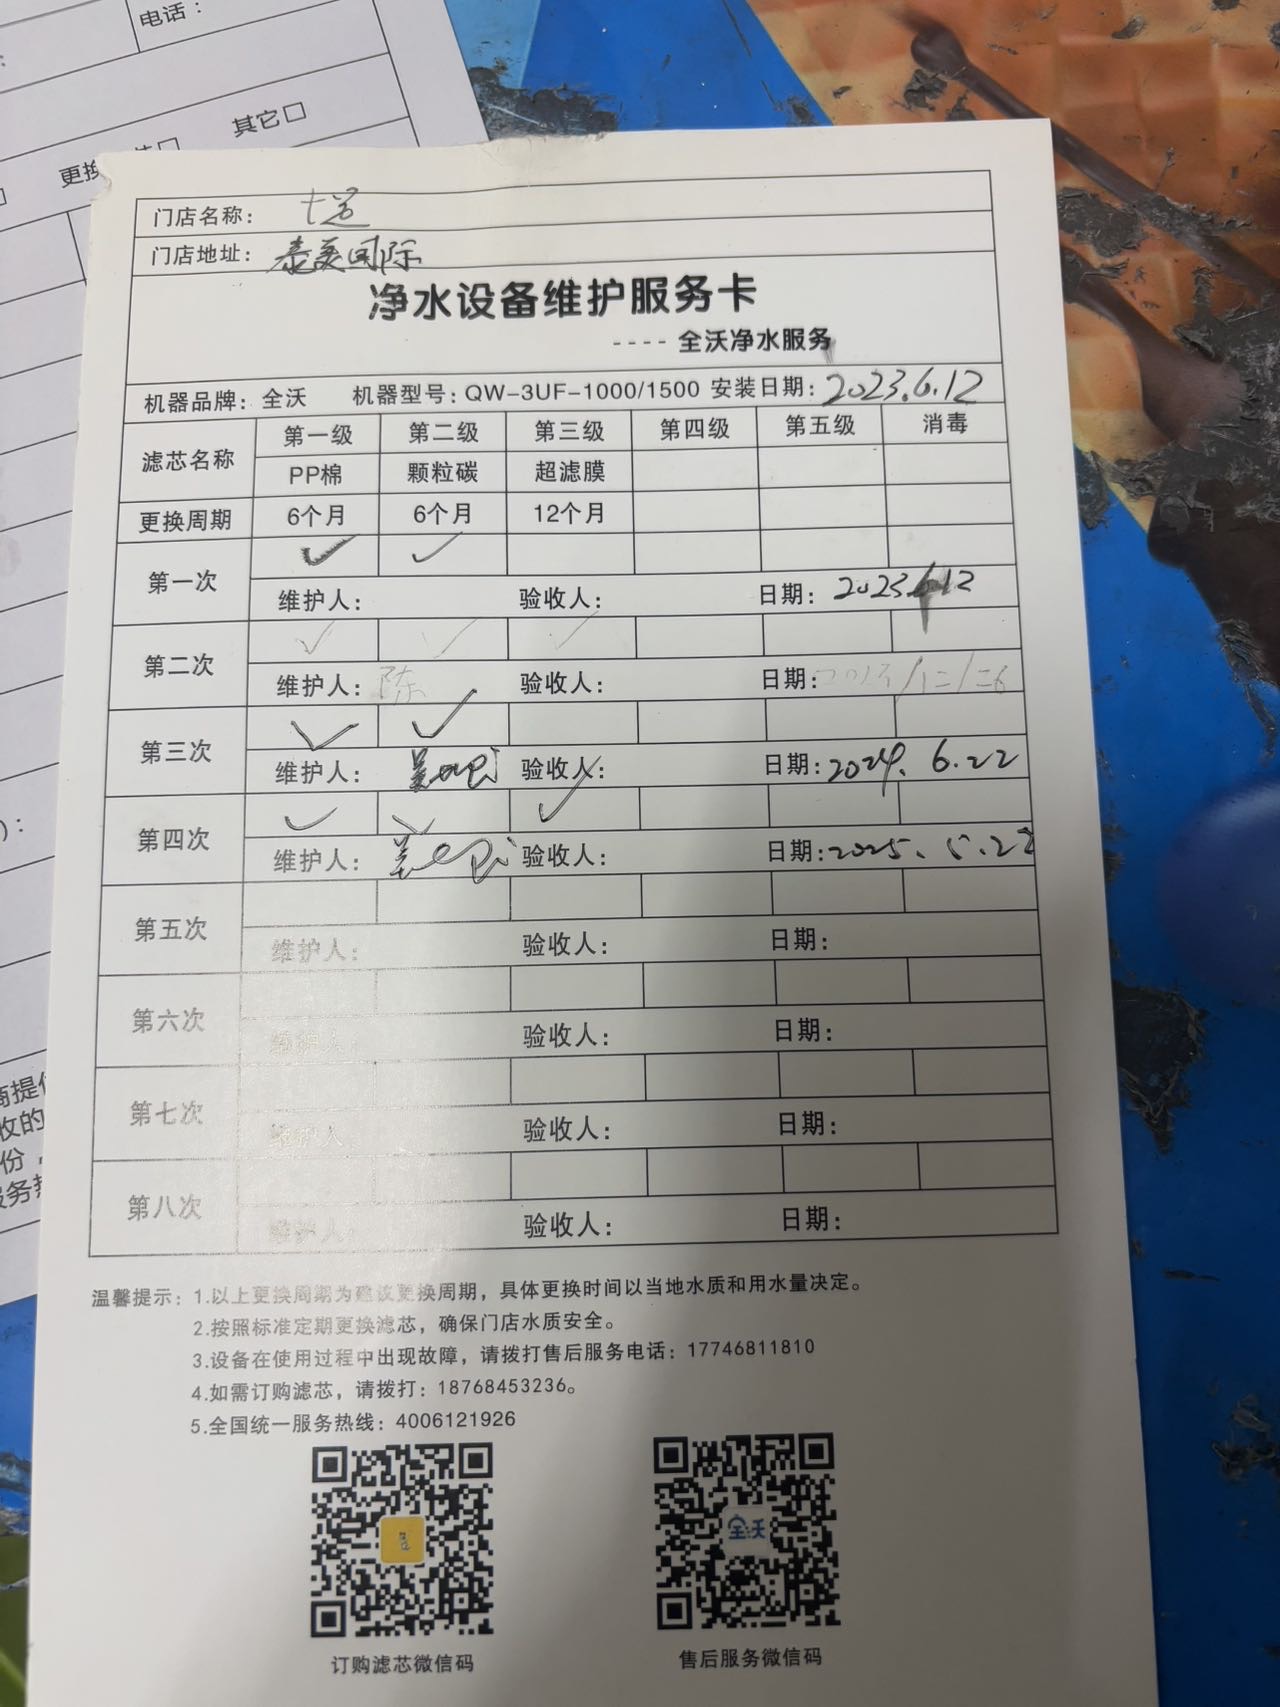 电话：
其它□
更换
门店名称：
门店地址：泰美国际
净水设备维护服务卡
---- 全沃净水服务
机器品牌：全沃 机器型号：QW-3UF-1000/1500 安装日期：2023.6.12
滤芯名称 第一级 第二级 第三级 第四级 第五级 消毒
PP棉 颗粒碳 超滤膜
更换周期 6个月 6个月 12个月
第一次 ✓ ✓
维护人： 验收人： 日期：2023.6.12
第二次 ✓ ✓ ✓
维护人：陈 验收人： 日期：/12/26
第三次 ✓ ✓
维护人： 验收人： 日期：2024.6.22
第四次 ✓ ✓ ✓
维护人： 验收人： 日期：2025.5.22
第五次
维护人： 验收人： 日期：
第六次
维护人： 验收人： 日期：
第七次
维护人： 验收人： 日期：
第八次
维护人： 验收人： 日期：
温馨提示：1.以上更换周期为建议更换周期，具体更换时间以当地水质和用水量决定。
2.按照标准定期更换滤芯，确保门店水质安全。
3.设备在使用过程中出现故障，请拨打售后服务电话：17746811810
4.如需订购滤芯，请拨打：18768453236。
5.全国统一服务热线：4006121926
全沃
订购滤芯微信码 售后服务微信码